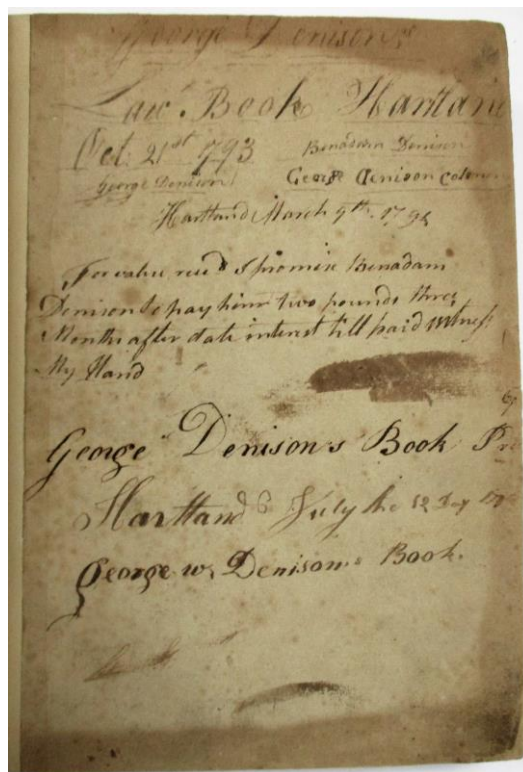 George Denison's
Law Book Hartland
Oct 21st 1793
Benadam Denison
George Denison
George Denison Colonel
Hartland March 9th 179
For value recd I promise Benadam
Denison to pay him two pounds three
Months after date interest till paid witness
My Hand
George Denison's Book
Hartland July the 12 Day
George w. Denison's Book.